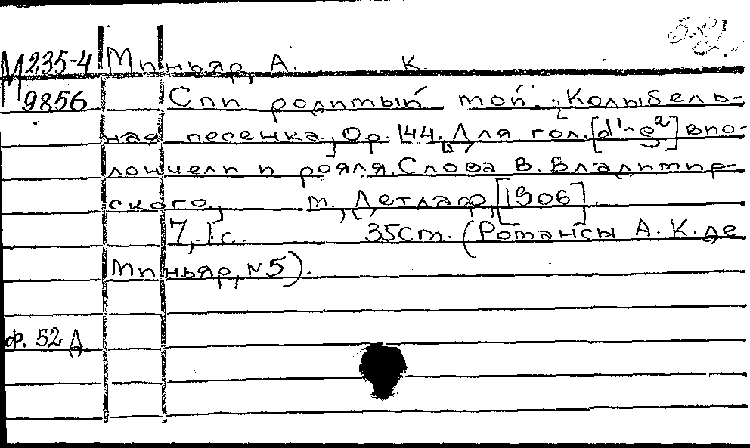 М235-4 Миньяр, А. К.
9856 Спи родимый мой. Колыбель-
ная песенка, Op. 144. Для гол. [d¹-g²] вио-
лончели и рояля. Слова В. Владимир-
ского.
М., Детлаф, [1906]
7, 1 с. 35 см. (Романсы А. К. де
Миньяр, №5).
Ф. 52 А